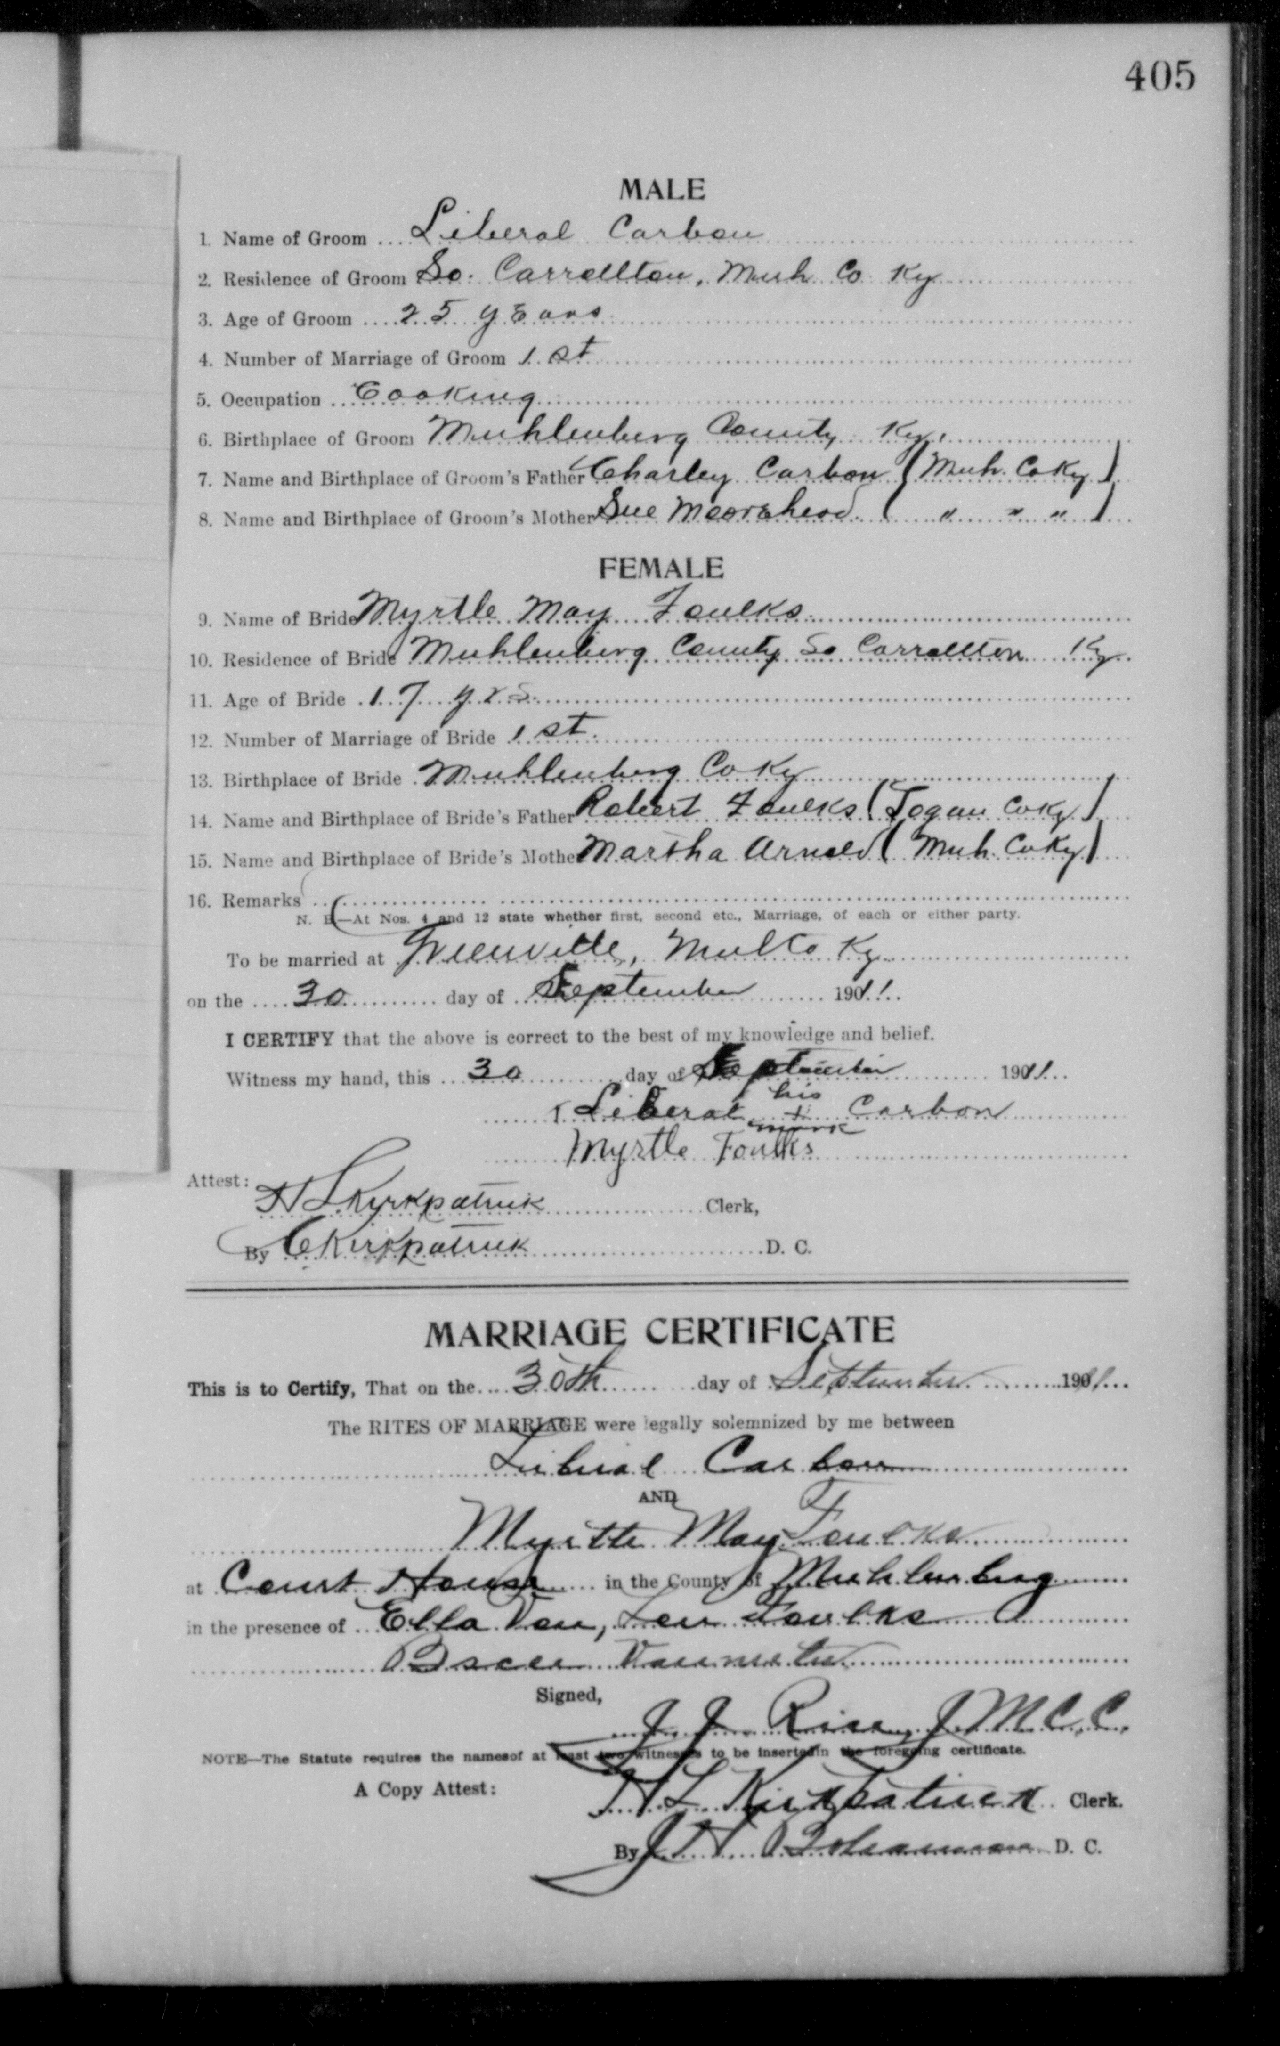 405
MALE
1. Name of Groom Liberal Carbon
2. Residence of Groom So. Carrollton, Muh Co Ky
3. Age of Groom 25 years
4. Number of Marriage of Groom 1 st
5. Occupation Cooking
6. Birthplace of Groom Muhlenberg County Ky.
7. Name and Birthplace of Groom's Father Charley Carbon (Muh. Co Ky)
8. Name and Birthplace of Groom's Mother Sue Moorehead ( " " " )
FEMALE
9. Name of Bride Myrtle May Foulks
10. Residence of Bride Muhlenberg County So Carrollton Ky.
11. Age of Bride 17 yrs
12. Number of Marriage of Bride 1 st.
13. Birthplace of Bride Muhlenberg Co Ky
14. Name and Birthplace of Bride's Father Robert Foulks (Logan Co Ky)
15. Name and Birthplace of Bride's Mother Martha Arnold (Muh. Co Ky)
16. Remarks
N. B.—At Nos. 4 and 12 state whether first, second etc., Marriage, of each or either party.
To be married at Greenville, Muh Co Ky
on the 30 day of September 1911
I CERTIFY that the above is correct to the best of my knowledge and belief.
Witness my hand, this 30 day of September 1911
his
Liberal + Carbon
mark
Myrtle Foulks
Attest:
H L Kirkpatrick Clerk,
By C Kirkpatrick D. C.
MARRIAGE CERTIFICATE
This is to Certify, That on the 30th day of September 1911
The RITES OF MARRIAGE were legally solemnized by me between
Liberal Carbon
AND
Myrtle May Foulks
at Court House in the County of Muhlenberg
in the presence of Ella , Foulks

Signed,
J. J. Rice, J.M.C.C.
NOTE—The Statute requires the names of at least two witnesses to be inserted in the foregoing certificate.
A Copy Attest:
H L Kirkpatrick Clerk.
By J H Bohannon D. C.